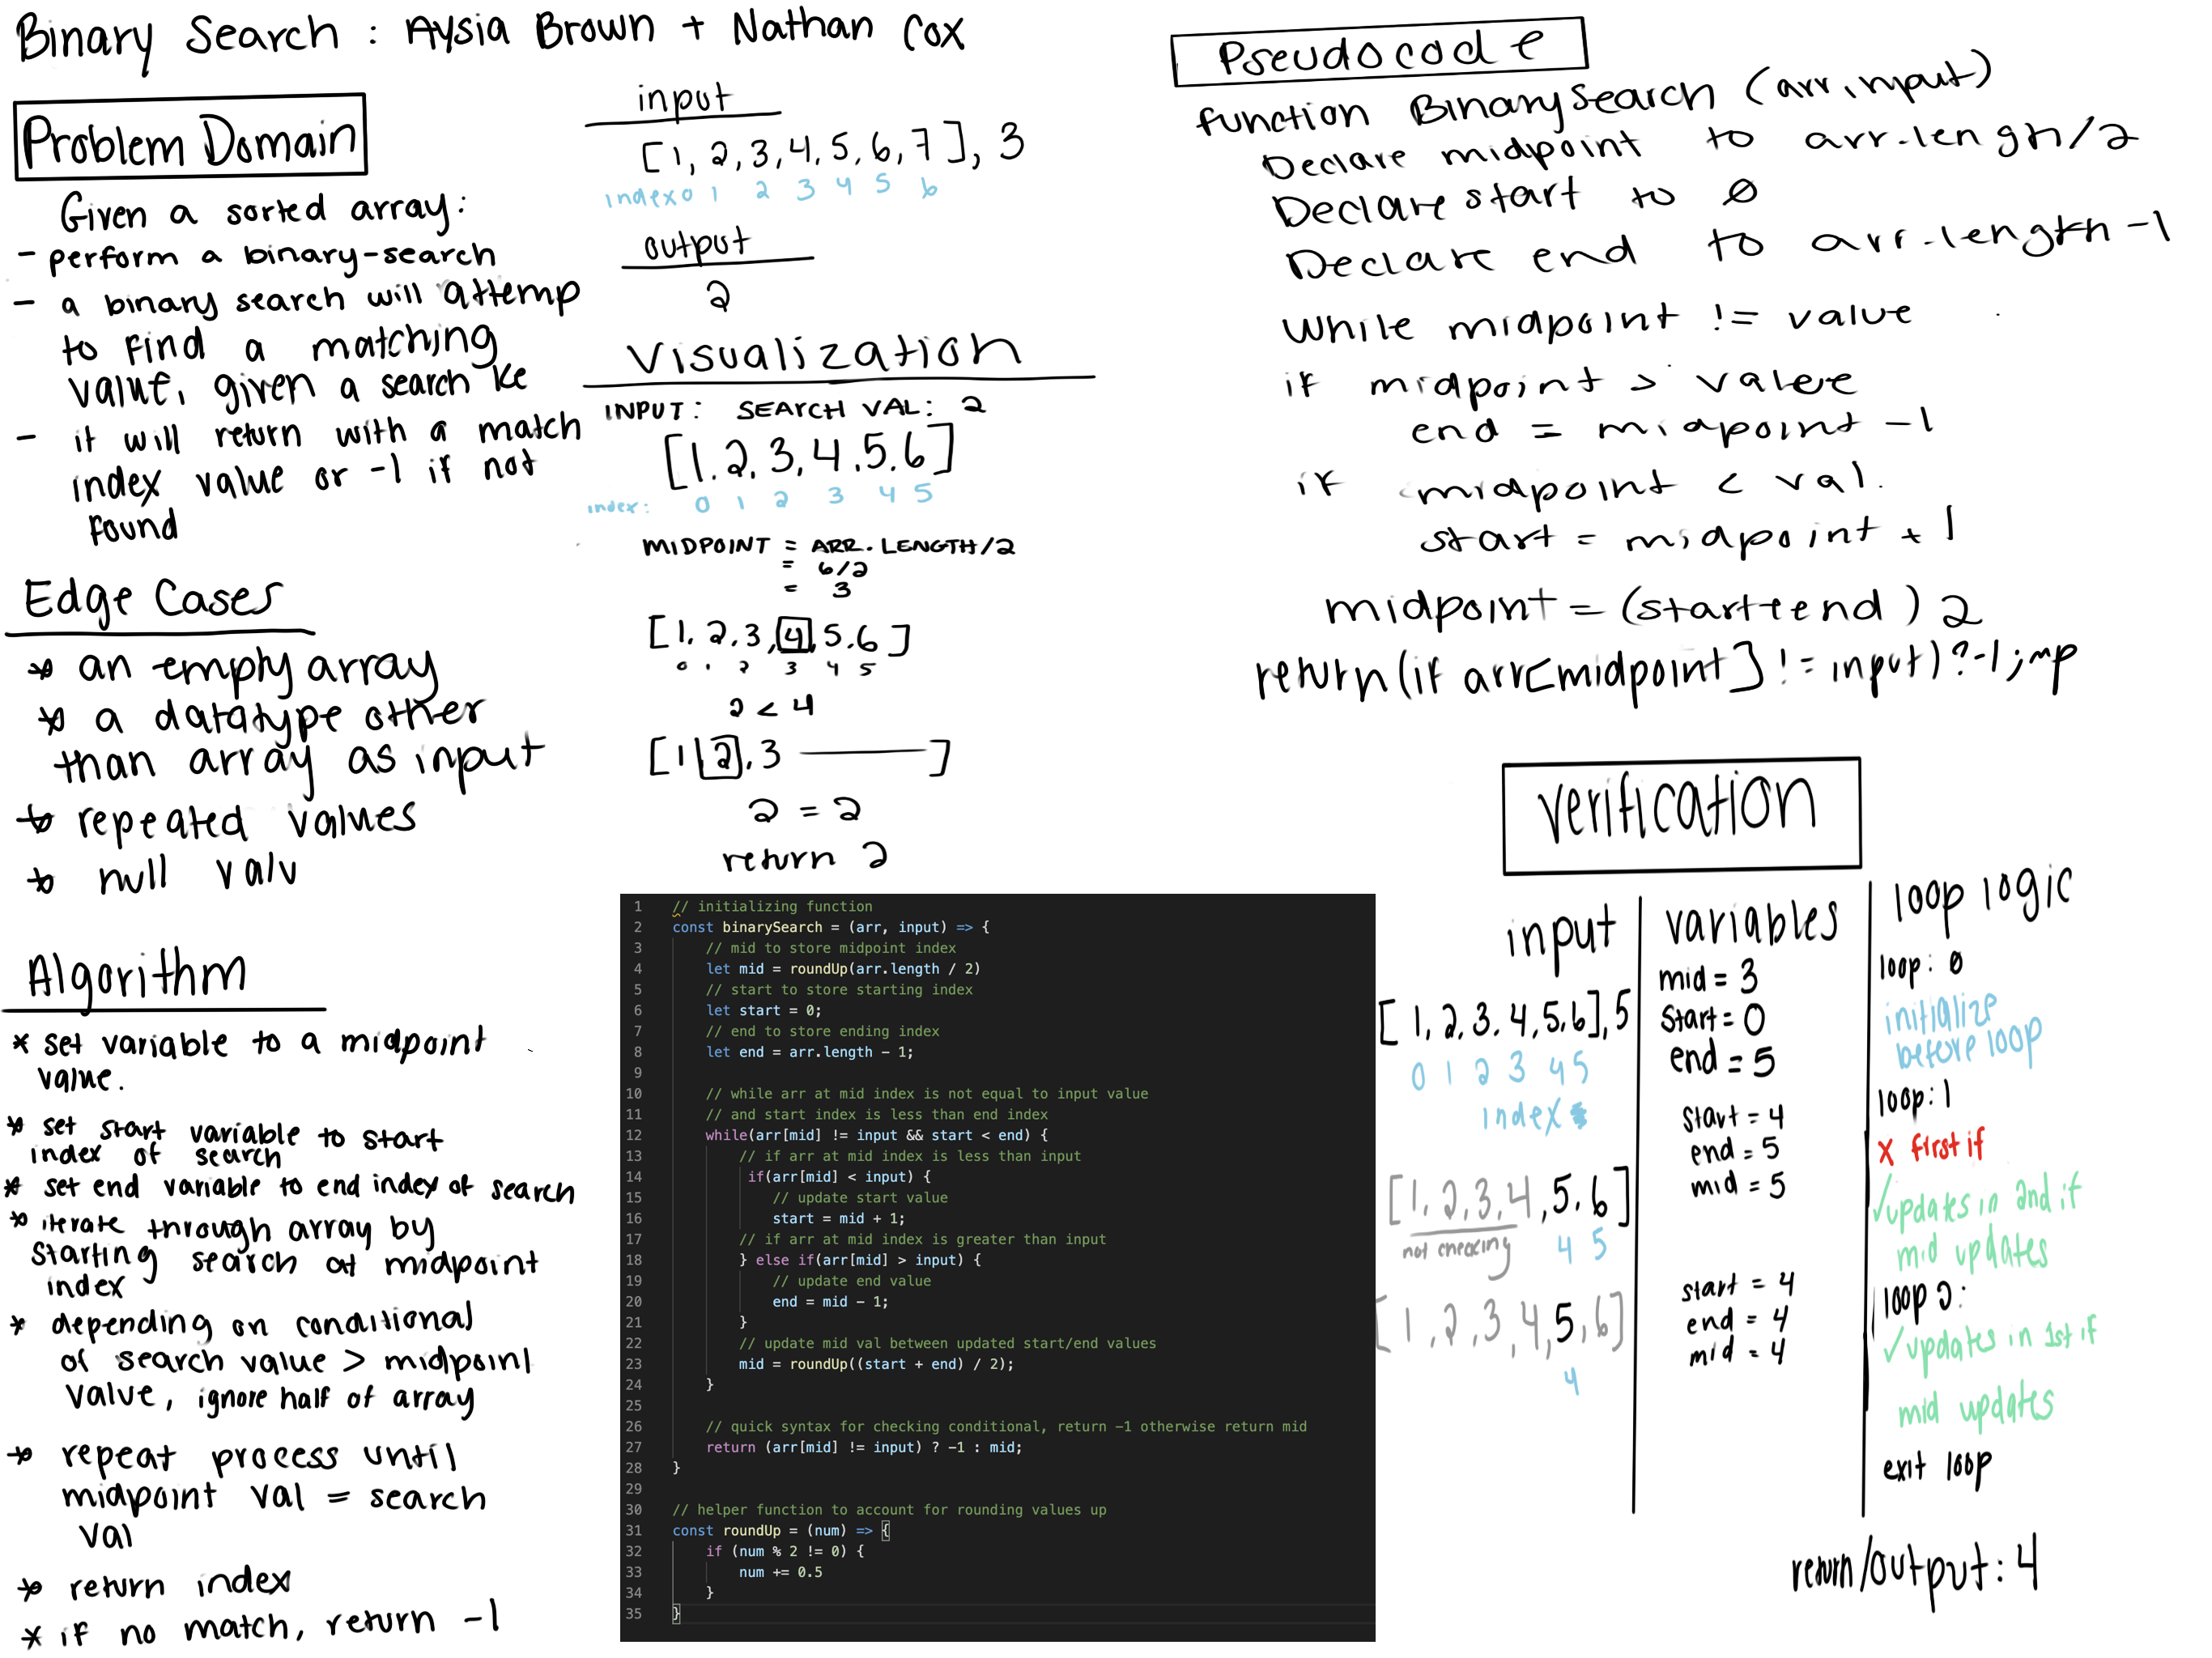 Binary Search : Aysia Brown + Nathan Cox
Problem Domain
Given a sorted array:
- perform a binary-search
- a binary search will attemp
to find a matching
value, given a search ke
- it will return with a match
index value or -1 if not
found
Edge Cases
* an empty array
* a datatype other
than array as input
* repeated values
* null valu
Algorithm
* set variable to a midpoint
value.
* set start variable to start
index of search
* set end variable to end index of search
* iterate through array by
starting search at midpoint
index
* depending on conditional
of search value > midpoint
value, ignore half of array
* repeat process until
midpoint val = search
val
* return index
* if no match, return -1
input
[1, 2, 3, 4, 5, 6, 7], 3
index 0 1 2 3 4 5 6
output
2
Visualization
INPUT: SEARCH VAL: 2
[1. 2. 3, 4, 5. 6]
index: 0 1 2 3 4 5
MIDPOINT = ARR. LENGTH/2
= 6/2
= 3
[1, 2, 3, 4, 5, 6]
0 1 2 3 4 5
2 < 4
[1 2, 3 ]
2 = 2
return 2
1 // initializing function
2 const binarySearch = (arr, input) => {
3 // mid to store midpoint index
4 let mid = roundUp(arr.length / 2)
5 // start to store starting index
6 let start = 0;
7 // end to store ending index
8 let end = arr.length - 1;
9
10 // while arr at mid index is not equal to input value
11 // and start index is less than end index
12 while(arr[mid] != input && start < end) {
13 // if arr at mid index is less than input
14 if(arr[mid] < input) {
15 // update start value
16 start = mid + 1;
17 // if arr at mid index is greater than input
18 } else if(arr[mid] > input) {
19 // update end value
20 end = mid - 1;
21 }
22 // update mid val between updated start/end values
23 mid = roundUp((start + end) / 2);
24 }
25
26 // quick syntax for checking conditional, return -1 otherwise return mid
27 return (arr[mid] != input) ? -1 : mid;
28 }
29
30 // helper function to account for rounding values up
31 const roundUp = (num) => {
32 if (num % 2 != 0) {
33 num += 0.5
34 }
35 }
Pseudocode
function BinarySearch (arr, input)
Declare midpoint to arr.length/2
Declare start to 0
Declare end to arr.length -1
while midpoint != value
if midpoint > value
end = midpoint -1
if midpoint < val.
start = midpoint + 1
midpoint = (start+end) 2
return (if arr[midpoint] != input) ? -1 ; mp
Verification
input
[1, 2, 3, 4, 5, 6], 5
0 1 2 3 4 5
index
[1, 2, 3, 4, 5, 6]
not checking 4 5
[1, 2, 3, 4, 5, 6]
4
variables
mid = 3
Start = 0
end = 5
start = 4
end = 5
mid = 5
start = 4
end = 4
mid = 4
loop logic
loop: 0
initialize
before loop
loop: 1
x first if
✓updates in 2nd if
mid updates
loop 2:
✓updates in 1st if
mid updates
exit loop
return/output: 4